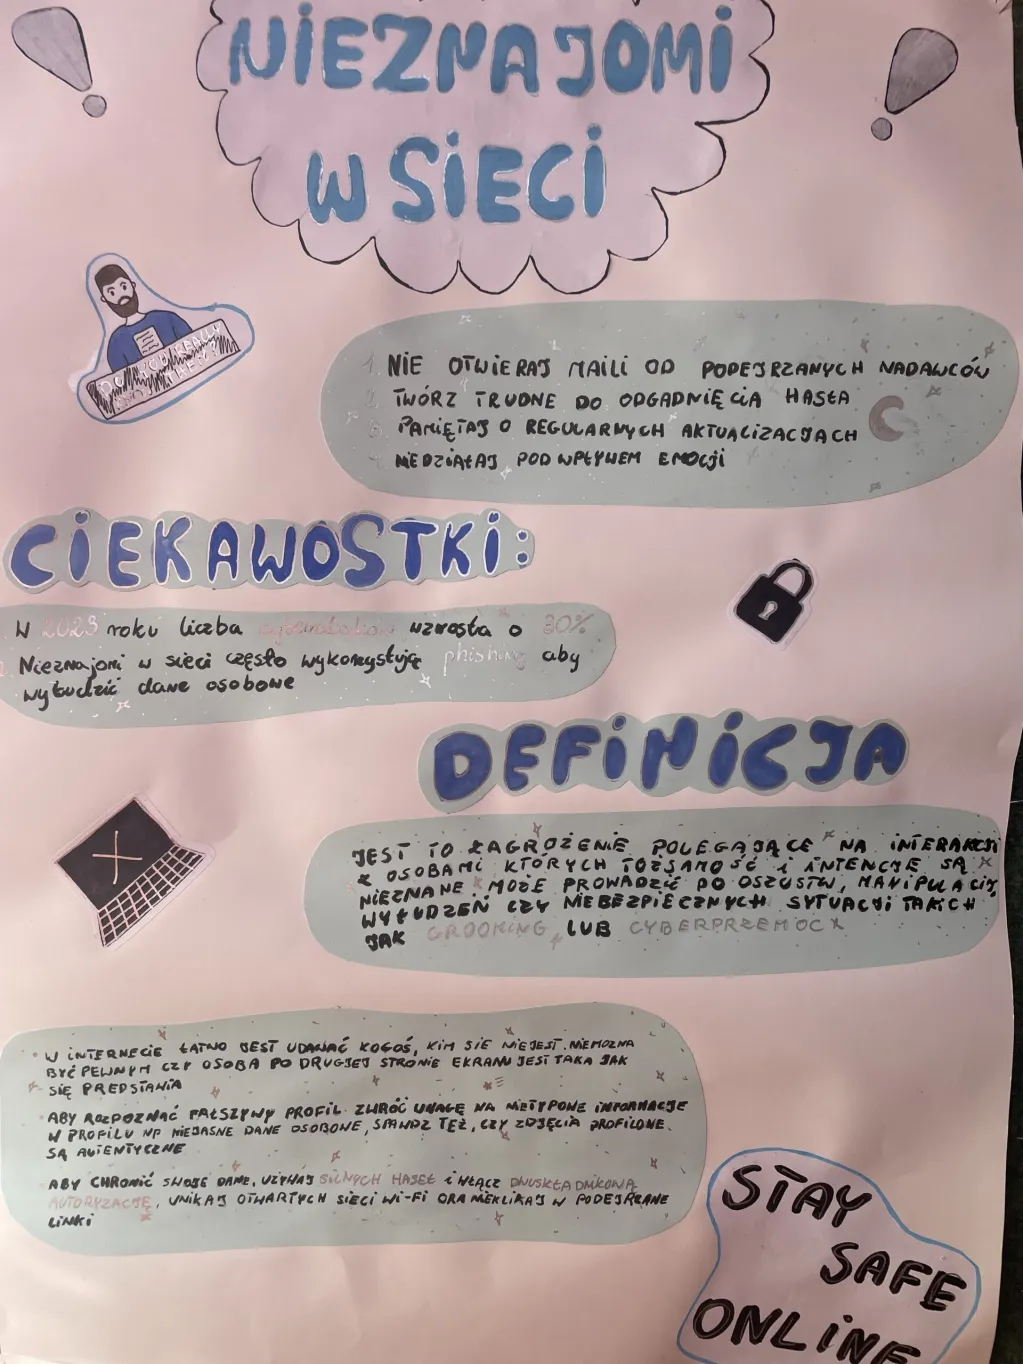 NIEZNAJOMI
W SIECI
DO YOU REALLY
1. NIE OTWIERAJ MAILI OD PODEJRZANYCH NADAWCÓW
2. TWÓRZ TRUDNE DO ODGADNIĘCIA HASŁA
3. PAMIĘTAJ O REGULARNYCH AKTUALIZACJACH
4. NIE DZIAŁAJ POD WPŁYWEM EMOCJI
CIEKAWOSTKI:
W 2023 roku liczba cyberataków wzrosła o 30%
Nieznajomi w sieci często wykorzystują phishing aby
wyłudzić dane osobowe
DEFINICJA
JEST TO ZAGROŻENIE POLEGAJĄCE NA INTERAKCJI
Z OSOBAMI KTÓRYCH TOŻSAMOŚĆ I INTENCJE SĄ
NIEZNANE. MOŻE PROWADZIĆ DO OSZUSTW, MANIPULACJI,
WYŁUDZEŃ CZY NIEBEZPIECZNYCH SYTUACJI TAKICH
JAK GROOMING LUB CYBERPRZEMOC
• W INTERNECIE ŁATWO JEST UDAWAĆ KOGOŚ, KIM SIĘ NIE JEST. NIE MOŻNA
BYĆ PEWNYM CZY OSOBA PO DRUGIEJ STRONIE EKRANU JEST TAKA JAK
SIĘ PREDSTAWIA
ABY ROZPOZNAĆ FAŁSZYWY PROFIL ZWRÓĆ UWAGĘ NA NIETYPOWE INFORMACJE
W PROFILU NP NIEJASNE DANE OSOBOWE, SPAWDZ TEŻ, CZY ZDJĘCIA PROFILOWE
SĄ AUTENTYCZNE
ABY CHRONIĆ SWOJE DANE, UŻYWAJ SILNYCH HASEŁ I WŁĄCZ DWUSKŁADNIKOWĄ
AUTORYZACJĘ, UNIKAJ OTWARTYCH SIECI WI-FI ORA NIE KLIKAJ W PODEJRZANE
LINKI
STAY
SAFE
ONLINE